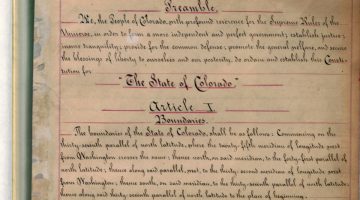 Preamble.
We, the People of Colorado, with profound reverence for the Supreme Ruler of the
Universe, in order to form a more independent and perfect government; establish justice;
insure tranquility; provide for the common defense; promote the general welfare, and secure
the blessings of liberty to ourselves and our posterity, do ordain and establish this Consti-
tution for
"The State of Colorado."
Article I
Boundaries.
The boundaries of the State of Colorado, shall be as follows: Commencing on the
thirty-seventh parallel of north latitude, where the twenty-fifth meridian of longitude west
from Washington crosses the same; thence north, on said meridian, to the forty-first parallel of
north latitude; thence along said parallel, west, to the thirty-second meridian of longitude west
from Washington; thence south, on said meridian, to the thirty-seventh parallel of north
latitude; thence along said thirty-seventh parallel of north latitude to the place of beginning.